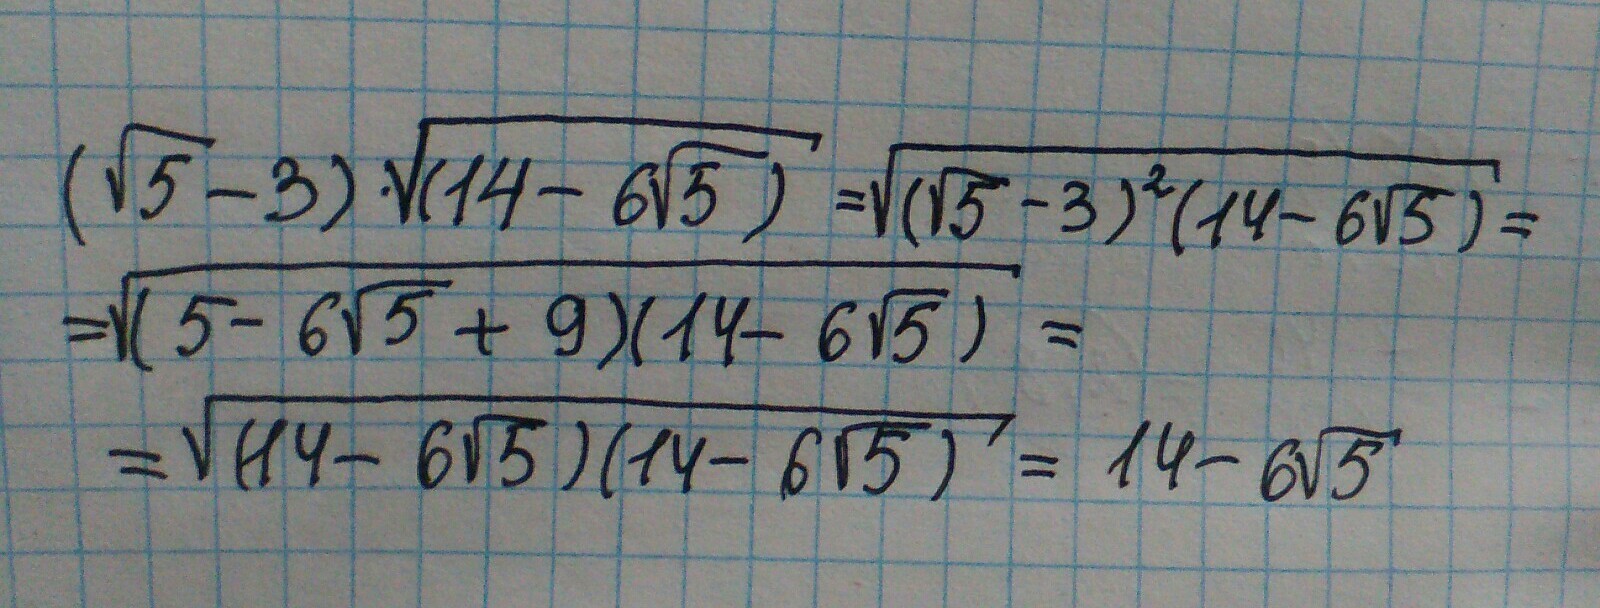 (√5 - 3) · √(14 - 6√5) = √(√5 - 3)²(14 - 6√5) =
= √(5 - 6√5 + 9)(14 - 6√5) =
= √(14 - 6√5)(14 - 6√5) = 14 - 6√5